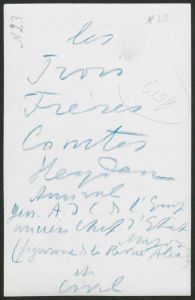 N23
N 23
les
Trois
Frères
Comtes
Heyden
Amiral
Gen. A. D. C. de l'Emp
ancien Chef d'Etat
Major
(figurant de la
et
Civil